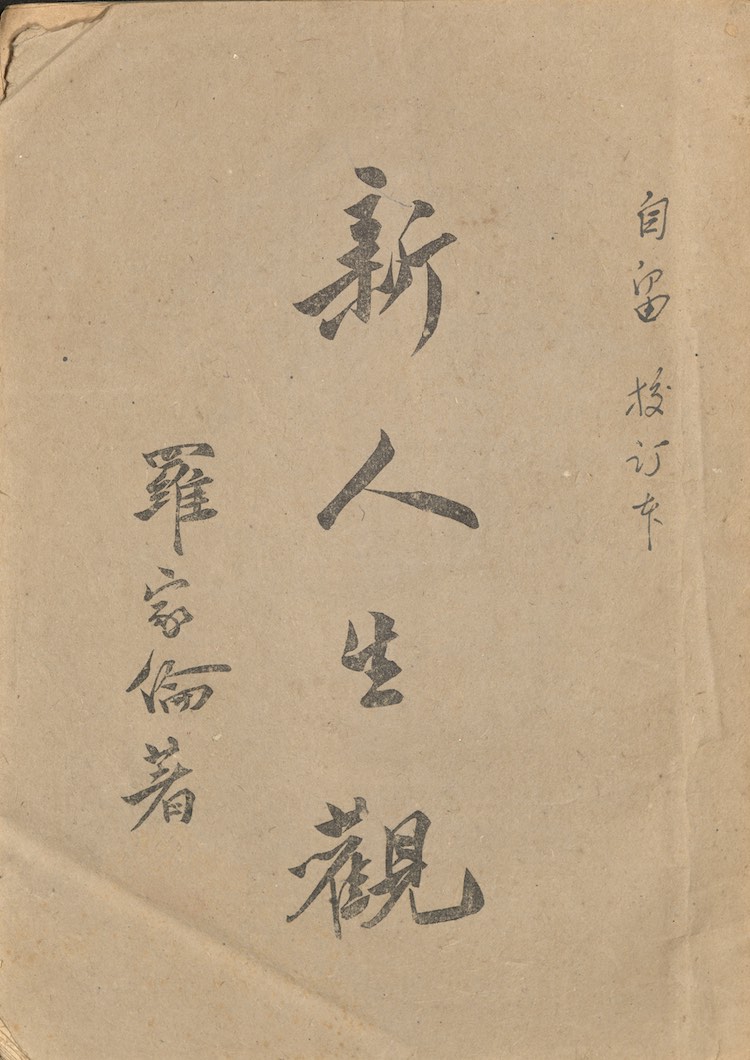 自留 校订本
新人生觀
羅家倫著